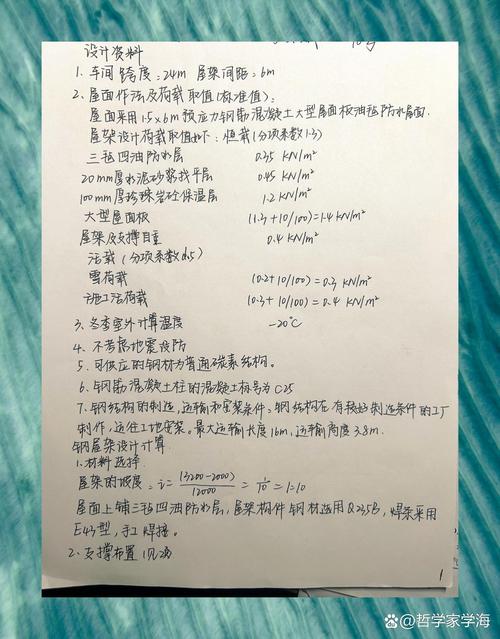 设计资料
1.车间跨度:24m 屋架间距:6m
2.屋面作法及荷载取值(标准值):
屋面采用1.5×6m预应力钢筋混凝土大型屋面板油毡防水屋面.
屋架设计荷载取值如下:恒载(分项系数1.3)
三毡四油防水层 0.35 KN/m²
20mm厚水泥砂浆找平层 0.45 KN/m²
100mm厚珍珠岩砼保温层 1.2 KN/m²
大型屋面板 (1.3+10/100)=1.4 KN/m²
屋架及支撑自重 0.4 KN/m²
活载(分项系数1.5)
雪荷载 (0.2+10/100)=0.3 KN/m²
施工活荷载 (0.3+10/100)=0.4 KN/m²
3.冬季室外计算温度 -20℃
4.不考虑地震设防
5.可供应的钢材为普通碳素结构。
6.钢筋混凝土柱的混凝土标号为C25
7.钢结构的制造,运输和安装条件:钢结构在有较好制造条件的工厂
制作,运往工地安装。最大运输长度16m,运输高度3.8m.
钢屋架设计计算
1.材料选择.
屋架的坡度:i=(3200-2000)/12000=1/10=1:10
屋面上铺三毡四油防水层,屋架构件钢材选用Q235B,焊条采用
E43型,手工焊接。
2.支撑布置
1
哲学家学海